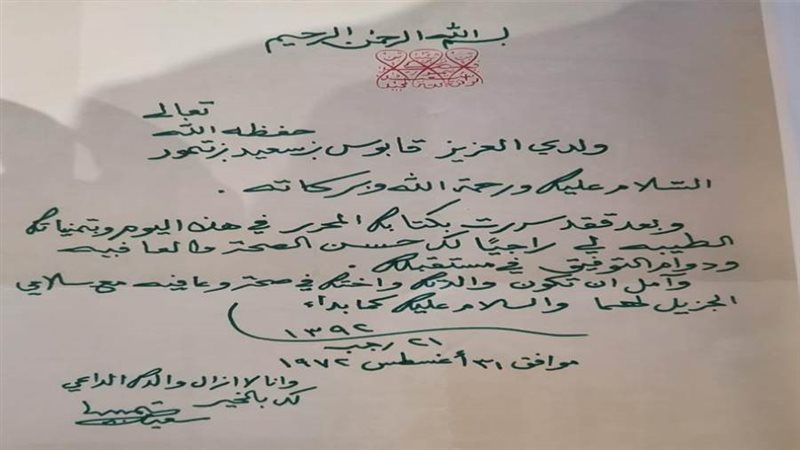 بسم الله الرحمن الرحيم
تعالى
حفظه الله
ولدي العزيز قابوس بن سعيد بن تيمور
السلام عليك ورحمة الله وبركاته .
وبعد فقد سررت بكتابك المحرر في هذه اليوم وتمنياتك
الطيبه لي راجيًا لك حسن الصحة والعافيه
ودوام التوفيق في مستقبلك .
وآمل ان تكون والدتك واختك في صحة وعافيه مع سلامي
الجزيل لهما والسلام عليك كما بدأ
١٣٩٢
٢١ رجب
موافق ٣١ أغسطس ١٩٧٢
وانا لا ازال والدك الداعي
لك بالخير
سعيد